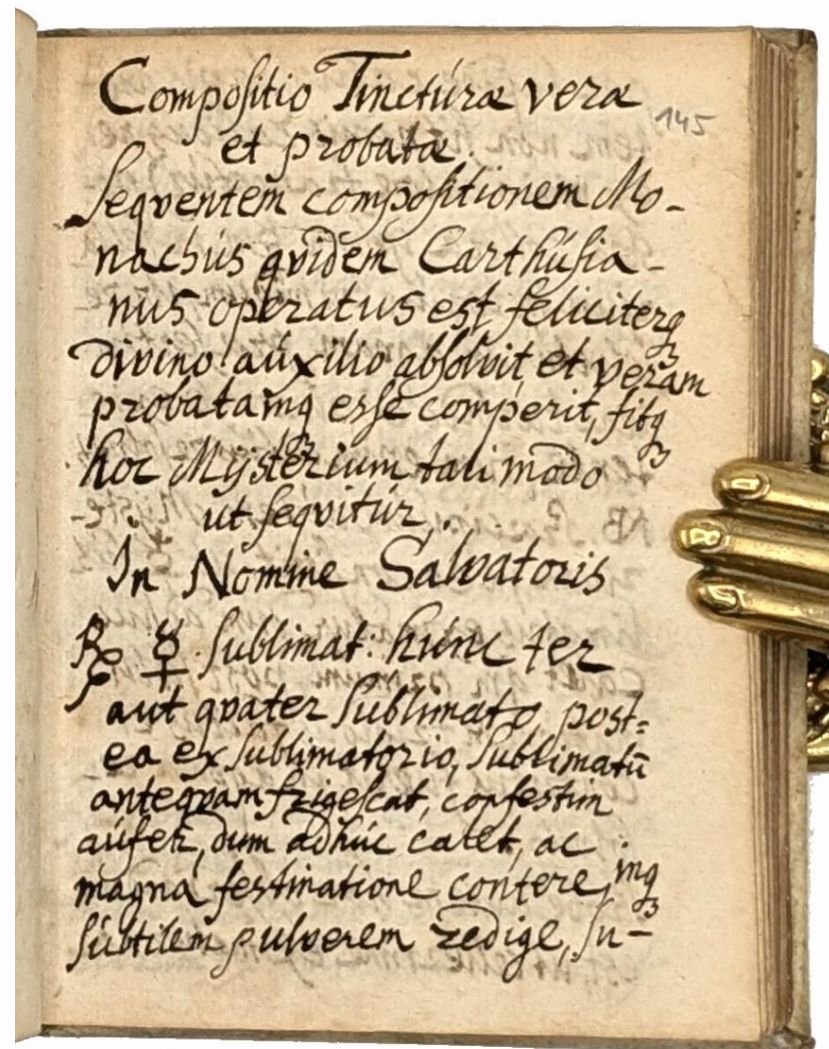 Compositio Tincturæ veræ
145
et probatæ.
Seqventem compositionem Mo-
nachus qvidem Carthusia-
nus operatus est feliciterqꝫ
divino auxilio absolvit, et veram
probatamqꝫ esse comperit, fitqꝫ
hoc Mysterium tali modo
ut seqvitur.
In Nomine Salvatoris
℞ ☿ Sublimat: hunc ter
aut qvater Sublimato, post=
ea ex Sublimatorio, Sublimatū
anteqvam frigescat, confestim
aufer, dum adhuc calet, ac
magna festinatione contere, inqꝫ
subtilem pulverem redige, Su-